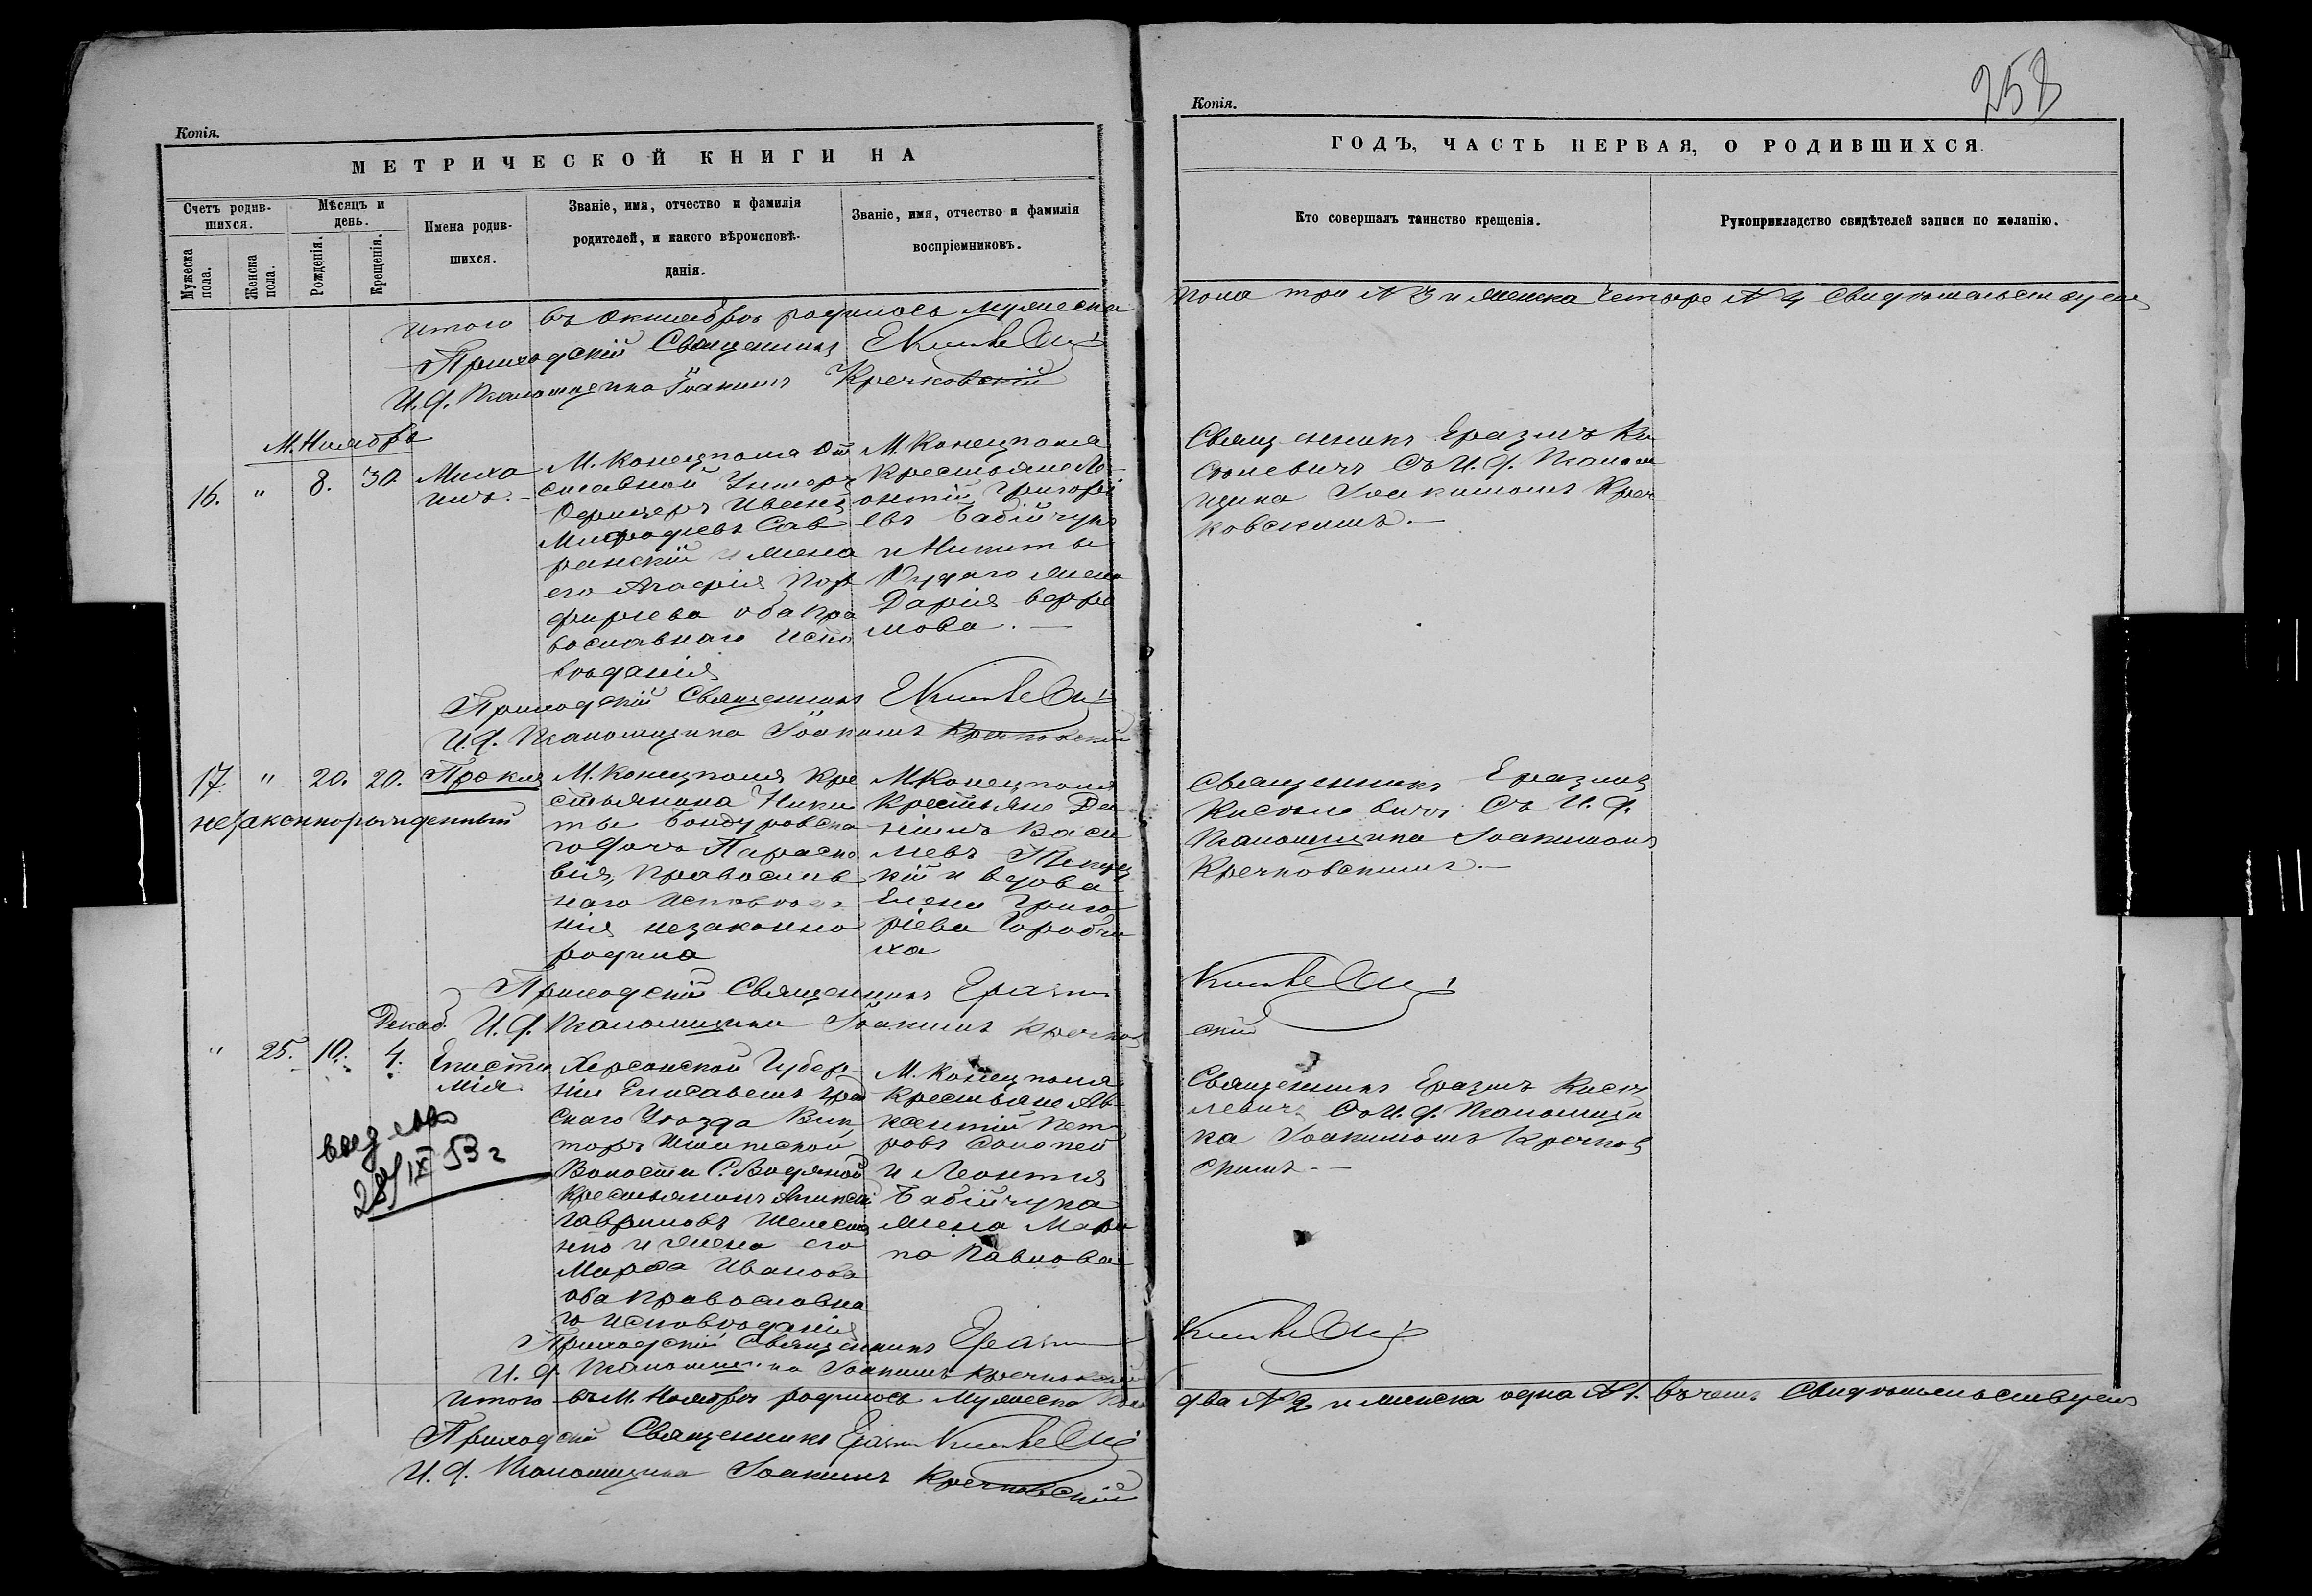 258
Копія.
МЕТРИЧЕСКОЙ КНИГИ НА
Счетъ родив-
шихся.
Мужеска
пола.
Женска
пола.
Мѣсяцъ и
день.
Рожденія.
Крещенія.
Имена родив-
шихся.
Званіе, имя, отчество и фамилія
родителей, и какого вѣроисповѣ-
данія.
Званіе, имя, отчество и фамилія
воспріемниковъ.
итого въ Октябрѣ родилось мужеска
Приходскій Священникъ
И. д. Псаломщика Іоакимъ Кречковскій
М. Ноябрь
16. " 8. 30. Миха
илъ.
М. Конецполя От
ставной Унтеръ
Офицеръ Иванъ
Сав
ранскій и жена
его Агафія Пор
фиріева оба пра
вославнаго испо
вѣданія
М. Конецполя
Крестьяне Ле-
онтій Григорі
евъ Бабійчукъ
и Никиты
жена
Дарія
Приходскій Священникъ
И. д. Псаломщика Іоакимъ Кречковскій
17. " 20. 20. Проклъ
незаконнорожденный
М. Конецполя Кре
стьянина Ники
ты Бондуровска
го дочь Параске
вія, православ
наго исповѣда
нія незаконно
родила
М. Конецполя
Крестьяне Да
ніилъ Васи
левъ
кій и вдова
Елена Григо
ріева Горобчи
ха
Приходскій Священникъ Еразмъ
И. д. Псаломщика Іоакимъ Кречков
Декаб.
" 25. 10. 4. Епистимія
Херсонской Губер-
ніи Елисаветград
скаго Уѣзда Вик
торъ
Волости С. Водяной
Крестьянинъ Алексѣй
Гавриловъ
и жена его
Марфа Иванова
оба православна
го исповѣданія
М. Конецполя
Крестьяне Ав-
ксентій Пет
ровъ
и Леонтія
Бабійчука
жена Мари
на Павлова
28/IX 53 г
Приходскій Священникъ Еразмъ
И. д. Псаломщика Іоакимъ Кречковскій
Итого въ М. Ноябрѣ родилось Мужеска пола
Приходскій Священникъ Еразмъ
И. д. Псаломщика Іоакимъ Кречковскій
Копія.
ГОДЪ, ЧАСТЬ ПЕРВАЯ, О РОДИВШИХСЯ.
Кто совершалъ таинство крещенія.
Рукоприкладство свидѣтелей записи по желанію.
пола три № 3 и женска четыре № 4 свидѣтельствуемъ
Священникъ Еразмъ Ки
стелевичъ Съ И. д. Псалом
щика Іоакимомъ Креч
ковскимъ.—
Священникъ Еразмъ
Кистелевичъ Съ И. д.
Псаломщика Іоакимомъ
Кречковскимъ.—
скій
Священникъ Еразмъ Кисте
левичъ Съ И. д. Псаломщи
ка Іоакимомъ Кречков
скимъ.—
два № 2 и женска одна № 1. въ чемъ Свидѣтельствуемъ